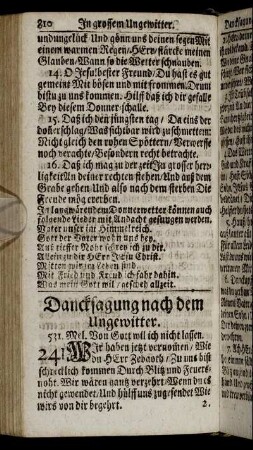 810 In grossem Ungewitter.
undungelück Und gönn uns deinen segen Mit
einem warmen Regen/HErr/stärcke meinen
Glauben/Wann so die Wetter schnauben.
14. O JEsu/bester Freund/Du hast es gut
gemeint Mit bösen und mit frommen/Drum
bist zu uns kommen: Hilff daß ich dir gefalle
Bey diesem Donner-schalle.
15. Daß ich den jüngsten tag/ Da eins der
verachte/Besondern recht betrachte.
16. Daß ich mag zu der zeit In grosser herr-
ligkeit An deiner rechten stehen/Und auß dem
Grabe gehen Und also nach dem sterben Die
Freude mög ererben.
In langwärendem Donnerwetter können auch
folgende Lieder mit Andacht gesungen werden.
Vater unser im Himmelreich.
Gott der Vater wohn uns bey.
Auß tieffer Noht schrey ich zu dir.
Allein zu dir HErr JEsu Christ.
Mitten wir im Leben sind.
Mit Fried und Freud ich fahr dahin.
Was mein Gott wil/ gescheh allzeit.
Dancksagung nach dem
Ungewitter.
531. Mel. Von Gott wil ich nicht lassen.
241 Wir haben jetzt vernommen/ Wie
du HErr Zebaoth/Zu uns bist
schrecklich kommen Durch Blitz und Feuers-
noht. Wir wären gantz verzehrt/Wenn du es
nicht gewendet/Und hülff uns zugesendet Wie
wirs von dir begehrt. 2.